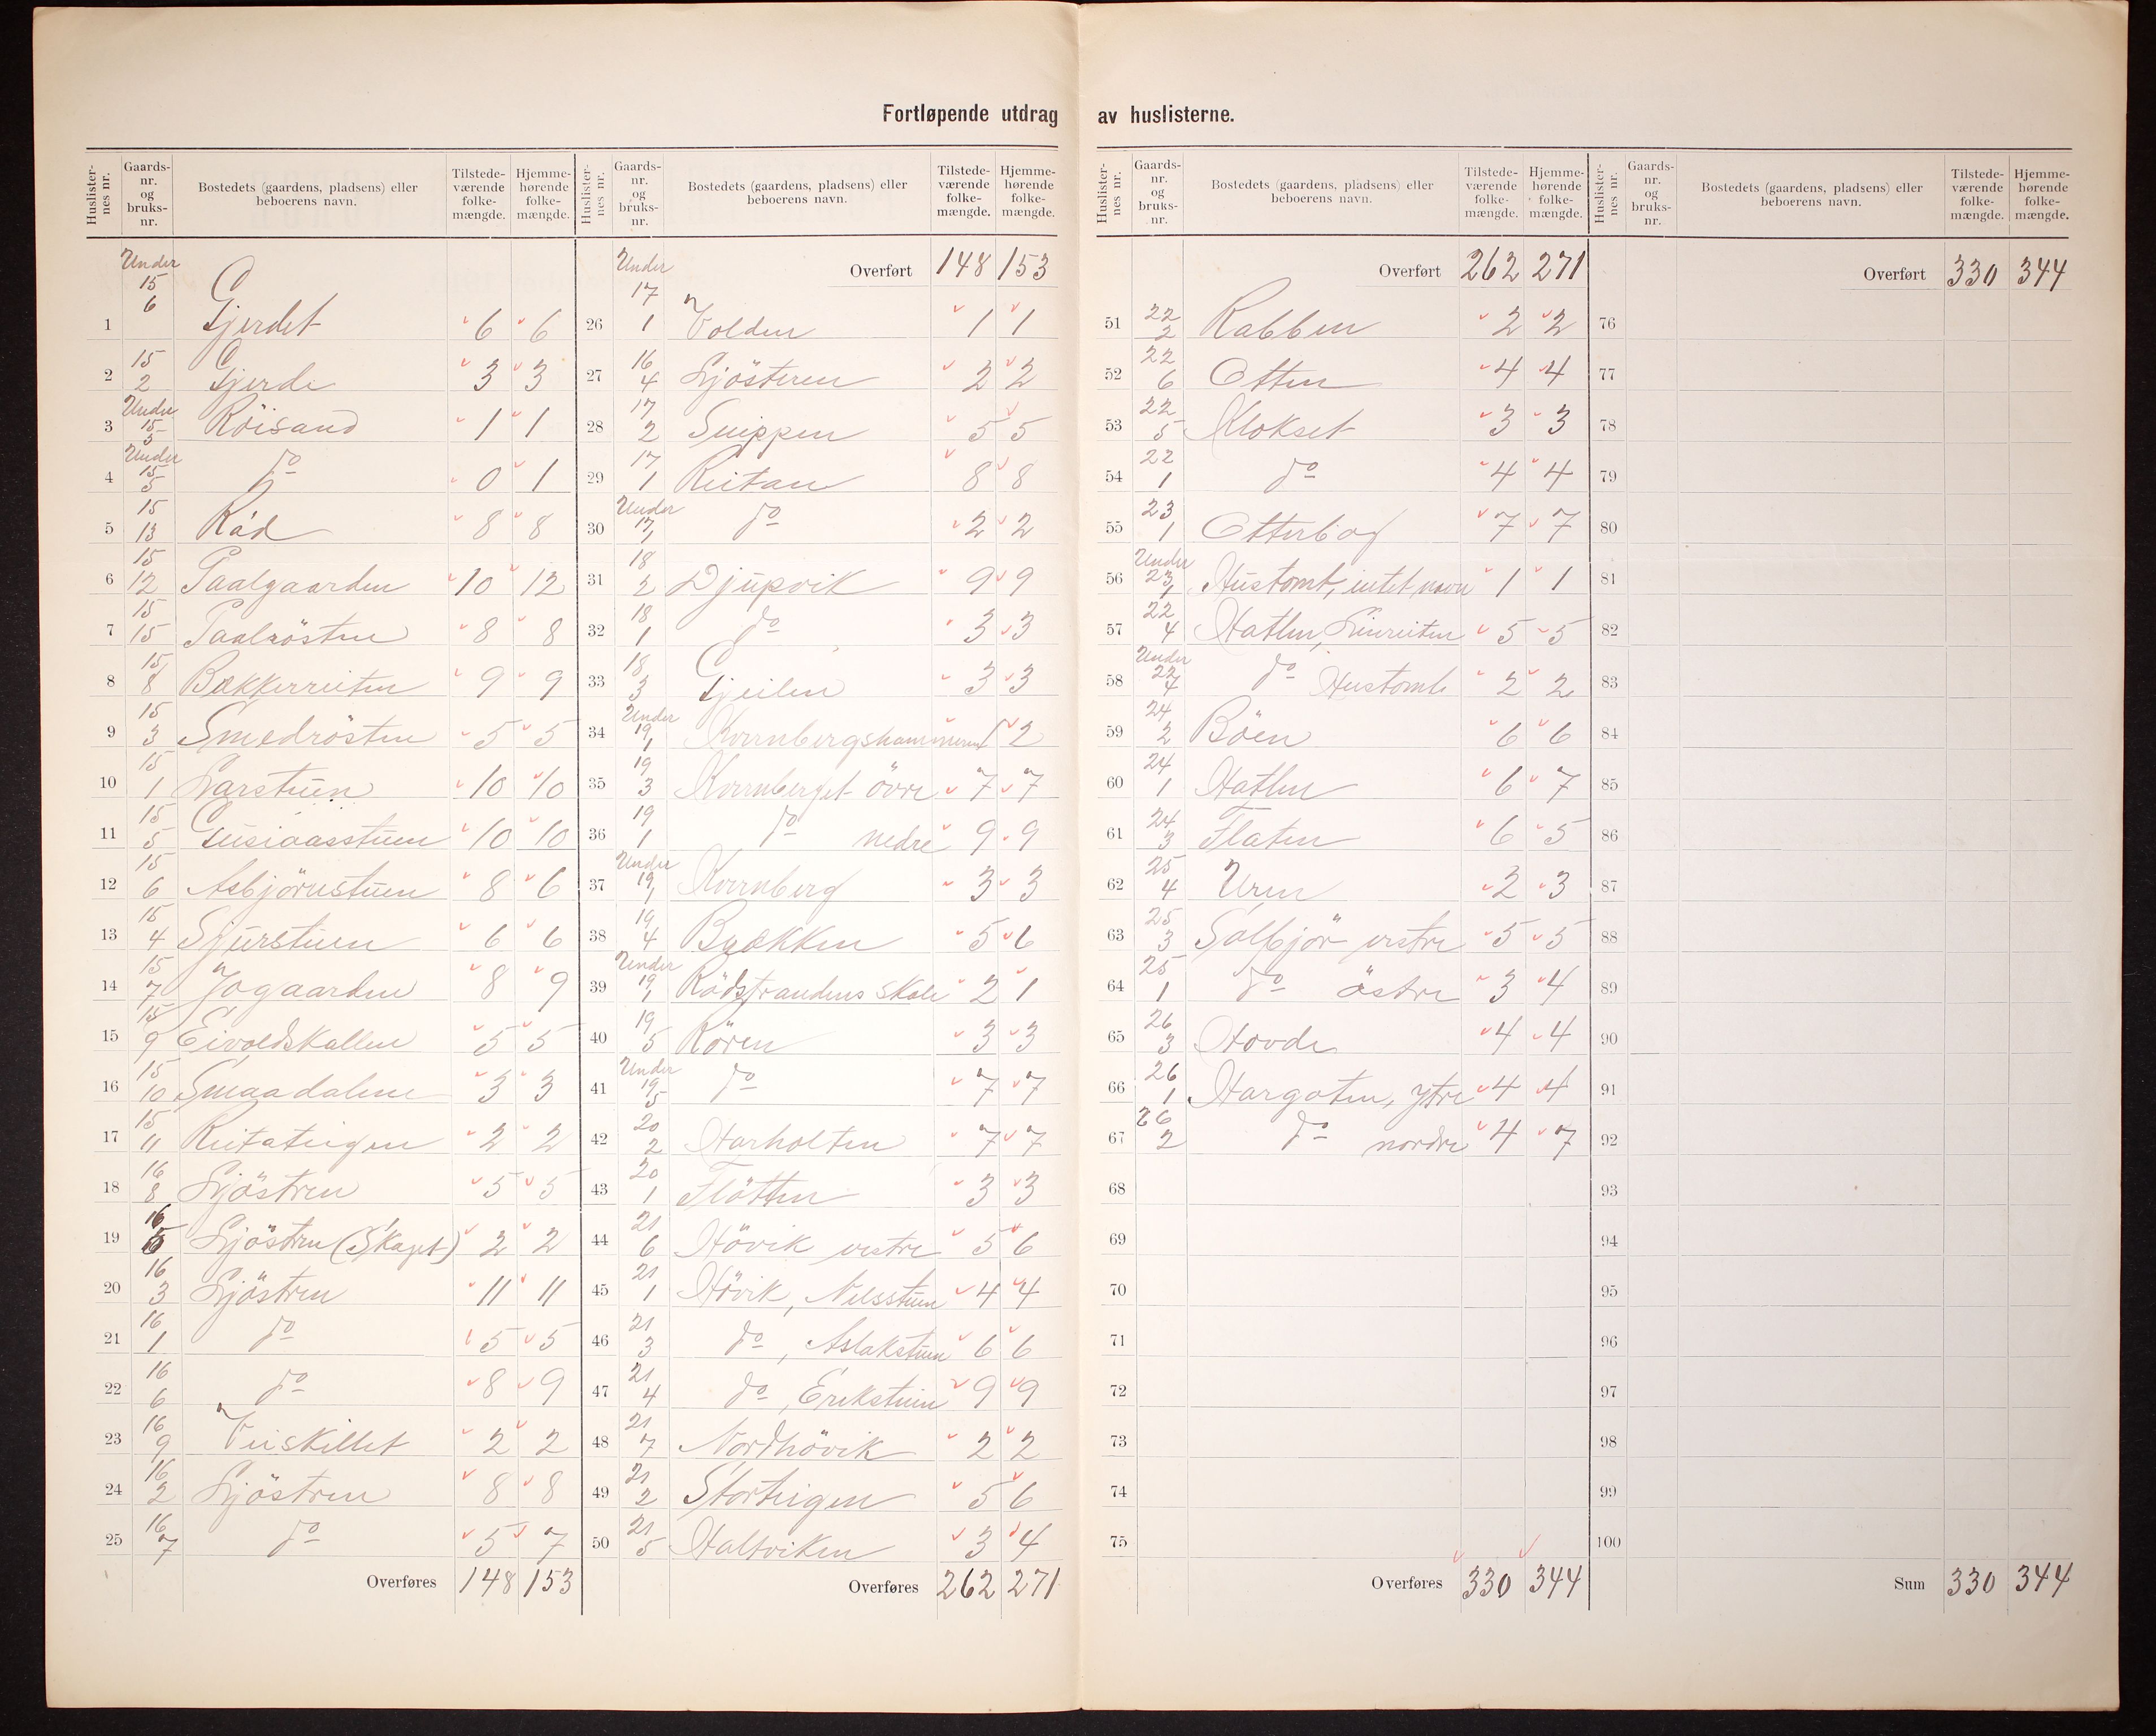 Fortløpende utdrag av huslisterne.
Huslister-nes nr. | Gaards-nr. og bruks-nr. | Bostedets (gaardens, pladsens) eller beboerens navn. | Tilstede-værende folke-mængde. | Hjemme-hørende folke-mængde.
1 Under 15 6 Gjerdet 6 6
2 15 2 Gjerde 3 3
3 Under 15 3 Röisand 1 1
4 Under 15 5 do 0 1
5 15 13 Råd 8 8
6 15 12 Paalgaarden 10 12
7 15 15 Paalröstne 8 8
8 15 8 Bakkerreiten 9 9
9 15 3 Smedröstne 5 5
10 15 1 Larstuen 10 10
11 15 5 Gusiaasstuen 10 10
12 15 6 Asbjörnstuen 8 6
13 15 4 Sjurstuen 6 6
14 15 7 Jogaarden 8 9
15 15 9 Eivoldskallen 5 5
16 15 10 Smaadalene 3 3
17 15 11 Reitateigen 2 2
18 16 8 Ljöstren 5 5
19 16 5 Ljöstren (Skaget) 2 2
20 16 3 Ljöstren 11 11
21 16 1 do 5 5
22 16 6 do 8 9
23 16 9 Veiskillet 2 2
24 16 2 Ljöstren 8 8
25 16 7 do 5 7
Overføres 148 153
Huslister-nes nr. | Gaards-nr. og bruks-nr. | Bostedets (gaardens, pladsens) eller beboerens navn. | Tilstede-værende folke-mængde. | Hjemme-hørende folke-mængde.
Overført 148 153
26 Under 17 1 Volden 1 1
27 16 4 Ljösteren 2 2
28 17 2 Snippen 5 5
29 17 1 Reitan 8 8
30 Under 17 1 do 2 2
31 18 2 Djupvik 9 9
32 18 1 do 3 3
33 18 3 Gjeilen 3 3
34 Under 19 1 Kvernbergshammeren 1 2
35 19 3 Kvernberget övre 7 7
36 19 1 do nedre 9 9
37 Under 19 1 Kvernberg 3 3
38 19 4 Bakken 5 6
39 Under 19 1 Rödstrandens skole 2 1
40 19 5 Rören 3 3
41 Under 19 5 do 7 7
42 20 2 Harholten 7 7
43 20 1 Flötten 3 3
44 21 6 Hövik vestre 5 6
45 21 1 Hövik, Nilsstuen 4 4
46 21 3 do, Aslakstuen 6 6
47 21 4 do, Erikstuen 9 9
48 21 7 Nordhövik 2 2
49 21 2 Storteigen 5 6
50 21 5 Haltviken 3 4
Overføres 262 271
Huslister-nes nr. | Gaards-nr. og bruks-nr. | Bostedets (gaardens, pladsens) eller beboerens navn. | Tilstede-værende folke-mængde. | Hjemme-hørende folke-mængde.
Overført 262 271
51 22 2 Rabben 2 2
52 22 6 Otten 4 4
53 22 5 Mokset 3 3
54 22 1 do 4 4
55 23 1 Otterbog 7 7
56 Under 23 1 Hustomt, intet navn 1 1
57 22 4 Hatlen, Linreiten 5 5
58 Under 22 4 do Hustomt 2 2
59 24 2 Böen 6 6
60 24 1 Hatlen 6 7
61 24 3 Flaten 6 5
62 25 4 Uren 2 3
63 25 3 Solbjör vestre 5 5
64 25 1 do östre 3 4
65 26 3 Hovde 4 4
66 26 1 Hargoten, ytre 4 4
67 26 2 do nordre 4 7
68
69
70
71
72
73
74
75
Overføres 330 344
Huslister-nes nr. | Gaards-nr. og bruks-nr. | Bostedets (gaardens, pladsens) eller beboerens navn. | Tilstede-værende folke-mængde. | Hjemme-hørende folke-mængde.
Overført 330 344
76
77
78
79
80
81
82
83
84
85
86
87
88
89
90
91
92
93
94
95
96
97
98
99
100
Sum 330 344